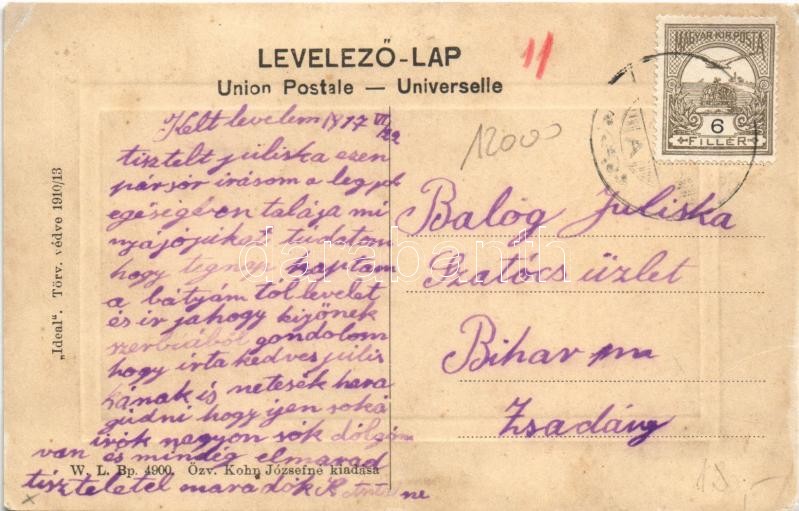 LEVELEZŐ-LAP
Union Postale — Universelle
11
12000
MAGYAR KIR. POSTA
6
FILLÉR
Kelt levelem 1917 VI/22
tisztelt juliska ezen
pársór irásom a legjob
egéségéron talája mi
nyájójukat tudatom
hogy tegnap kaptam
a bátyám tól levelet
és ir jahogy kijönek
szerbiából gondolom
hogy irta kedves julis
kának is netesék hara
gudni hogy ijen soká
irok nagyon sók dólgom
van és mindég elmarad
tiszteletel maradók
Balog Juliska
Szatócs üzlet
Bihar m
Zsadány
„Ideal". Törv. védve 1910/13
W. L. Bp. 4900. Özv. Kohn Józsefné kiadása
darabanth.com